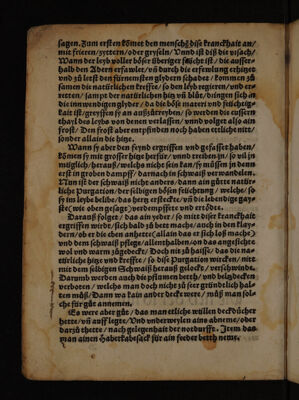 sagen. Zum ersten kömet den menschẽ dise kranckhait an/
mit frieren/zyttern/oder gryseln/ Vnnd ist diß die vrsach/
Wann der leyb voller böser überiger feücht ist/ die ausser-
halb den Adern erfawlet/vñ durch die erfewlung erhitzet
vnd zů letst den fürnemsten glydern schadet/ kommen zů
samen die natürlichen krefften/ so den leyb regieren/vnd er-
retten/ sampt der natürlichen hitz vñ blůt/ dringen sich an
die inn wendigen glyder/ da die böse materi vnd feüchtig-
kait ist/greyffen sy an außzůtreyben/ so werden die eussern
thayl des leybs von denen verlassen/ vnnd volget also ain
frost. Den frost aber entpfinden noch haben ettliche nitt/
sonder allain die hitze.
Wann sy aber den feynd ergriffen vnd gefasset haben/
kömen sy mit grosser hitze herfür/ vnnd treiben jn/ so vil jn
müglich/herauß/welche nicht sein kan/sy müssen jn dann
erst in groben dampff/ darnach in schwaiß verwandelen.
Nun ist der schwaiß nicht anders/ dann ain gůtte natür-
liche Purgation/der selbigen bösen feüchtung/ welche/ so
sy im leybe belibe/das hertz ersteckt/vñ die lebendige gay-
ster (wie oben gesagt) verdempffete vnd ertödet.
Darauß folget/ das ain yeder/ so mitt diser kranckhait
ergriffen wirdt/sich bald zů bett mache/ auch in den klay-
dern/ob er die eben anhette (allain das er sich bald mache)
vnd dem schwaiß pflege/allenthalben/on das angesichte
wol vnd warm zůgedeckt/ Doch nit zů haisse/das die na-
türliche hitz vnd kreffte/ so dise Purgation wircken/ nit
mit dem selbigen Schwaiß herauß gelockt/ verschwinde.
Darumb werden auch die pflaumen betth/vnd beltzdecken
verboten/ welche man doch nicht zů seer gründlich hal-
ten můß/ Dann wa kain ander decke were/ můß man sol-
che für gůt annemen.
Es were aber gůt/ das man etliche wullen deckbücher
hette/vñ auff legte/Vnd vnderweylen ains abneme/oder
darzů thette/nach gelegenhait der notdurfft. Item das
man ainen Haberkabesack für ain feeder betth neme.